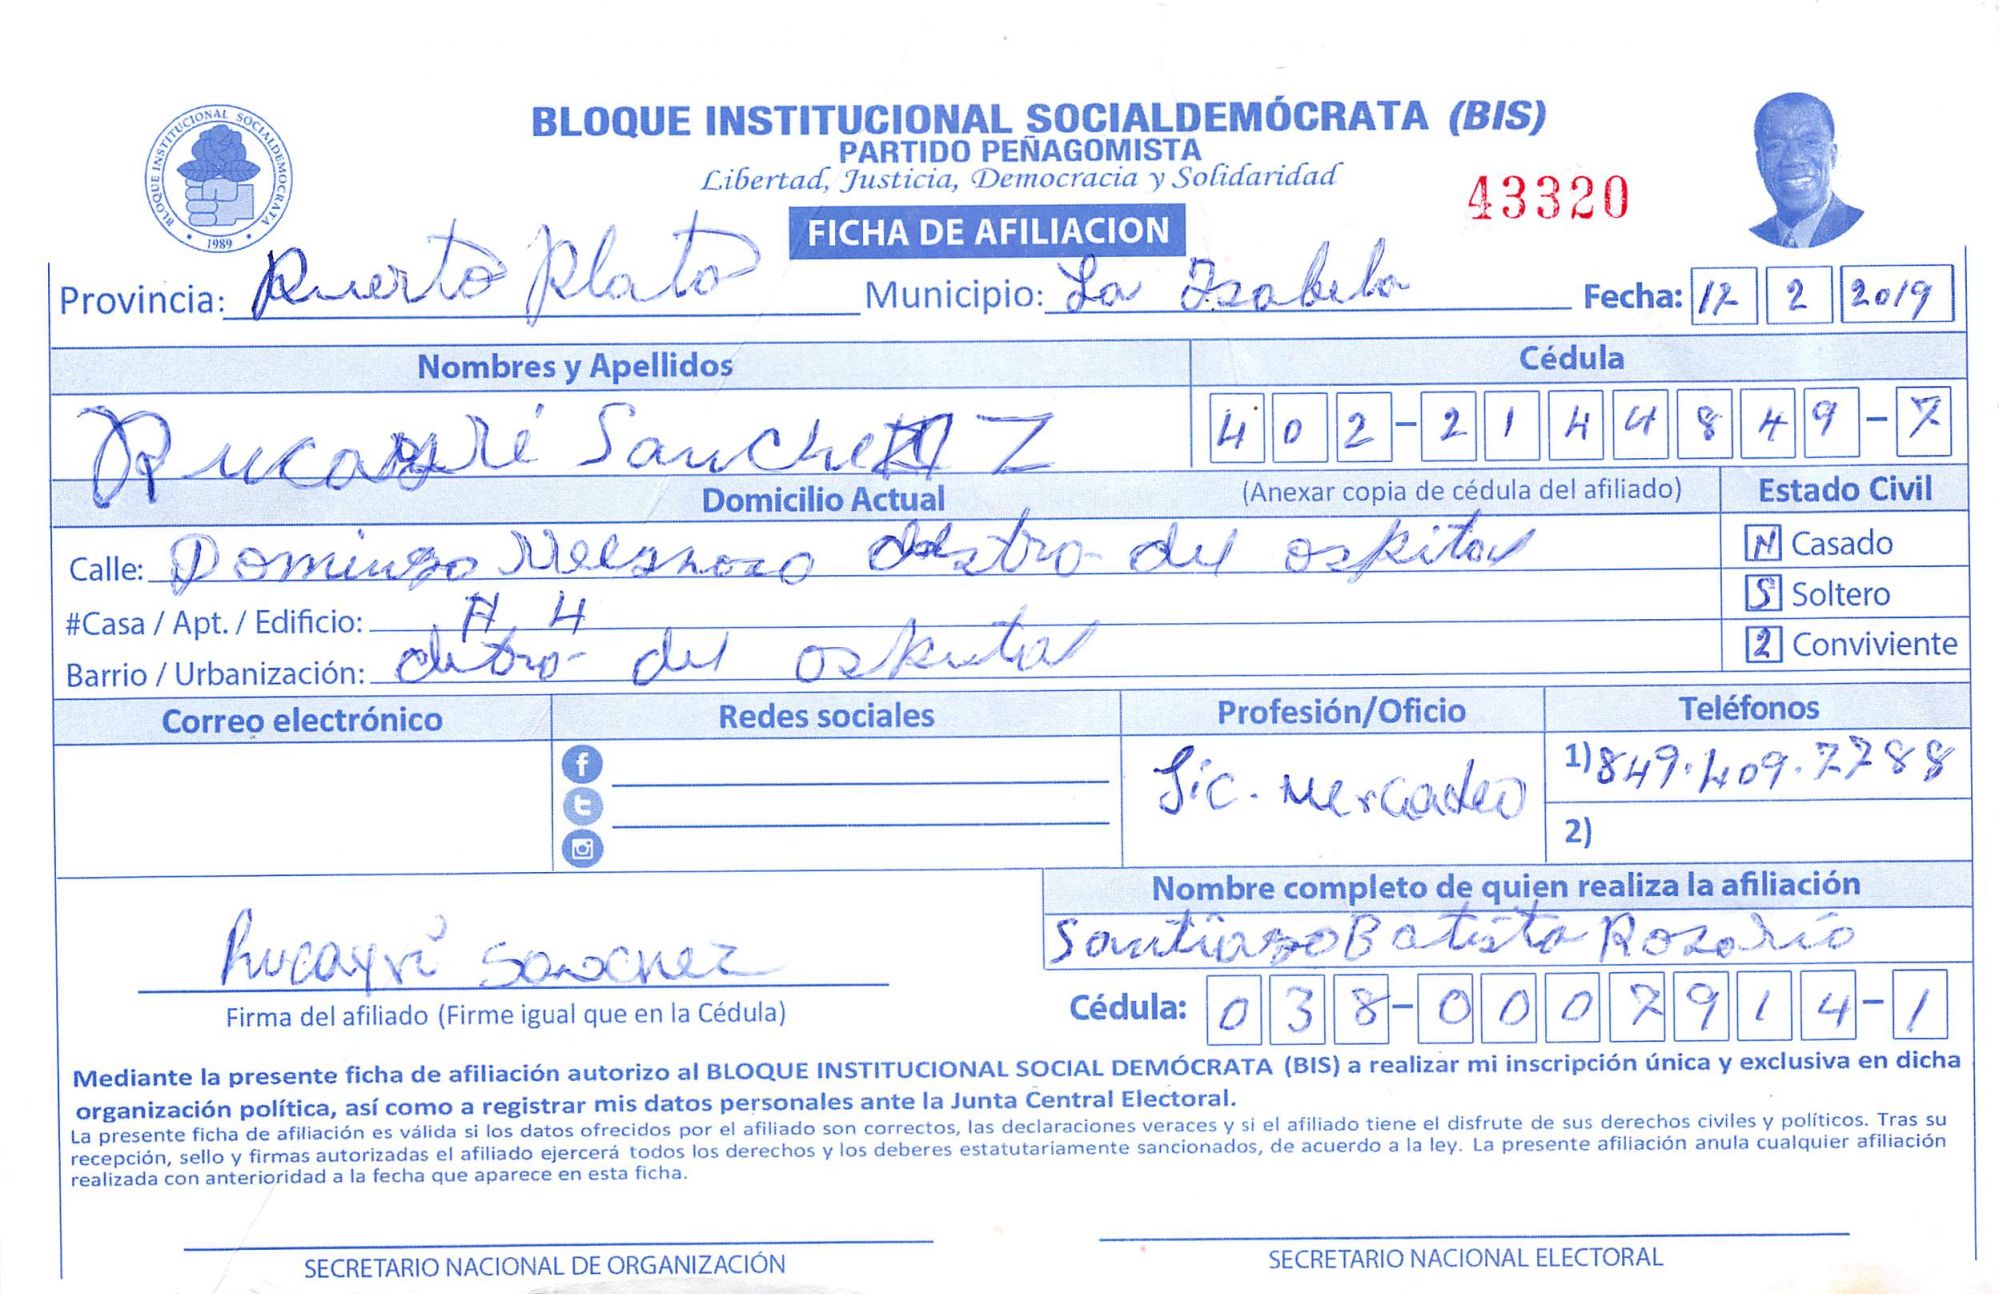 BLOQUE INSTITUCIONAL SOCIALDEMOCRATA
1989
BLOQUE INSTITUCIONAL SOCIALDEMÓCRATA (BIS)
PARTIDO PEÑAGOMISTA
Libertad, Justicia, Democracia y Solidaridad
43320
FICHA DE AFILIACION
Provincia: Puerto Plata Municipio: La Isabela Fecha: 12 2 2019
Nombres y Apellidos Cédula
Sanchez 402-2144849-7
Domicilio Actual (Anexar copia de cédula del afiliado) Estado Civil
Calle: Domingo del ospital Casado
#Casa / Apt. / Edificio: # 4 S Soltero
Barrio / Urbanización: detro del ospital 2 Conviviente
Correo electrónico Redes sociales Profesión/Oficio Teléfonos
Lic. Mercadeo 1) 849.409.7788
2)
Nombre completo de quien realiza la afiliación
Santiago Batista Rosario
Rucayri Sanchez
Firma del afiliado (Firme igual que en la Cédula) Cédula: 038-0007914-1
Mediante la presente ficha de afiliación autorizo al BLOQUE INSTITUCIONAL SOCIAL DEMÓCRATA (BIS) a realizar mi inscripción única y exclusiva en dicha
organización política, así como a registrar mis datos personales ante la Junta Central Electoral.
La presente ficha de afiliación es válida si los datos ofrecidos por el afiliado son correctos, las declaraciones veraces y si el afiliado tiene el disfrute de sus derechos civiles y políticos. Tras su
recepción, sello y firmas autorizadas el afiliado ejercerá todos los derechos y los deberes estatutariamente sancionados, de acuerdo a la ley. La presente afiliación anula cualquier afiliación
realizada con anterioridad a la fecha que aparece en esta ficha.
SECRETARIO NACIONAL DE ORGANIZACIÓN SECRETARIO NACIONAL ELECTORAL